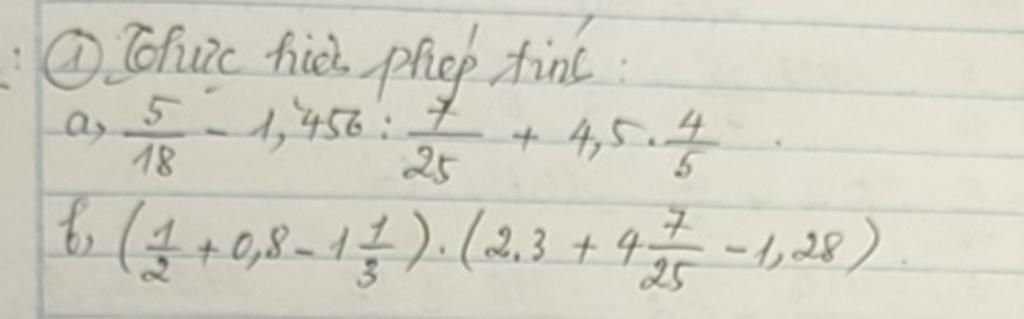 ① Thực hiện phép tính :
a, 5/18 - 1,456 : 7/25 + 4,5 . 4/5 .
b, (1/2 + 0,8 - 1 1/3) . (2.3 + 4 7/25 - 1,28) .